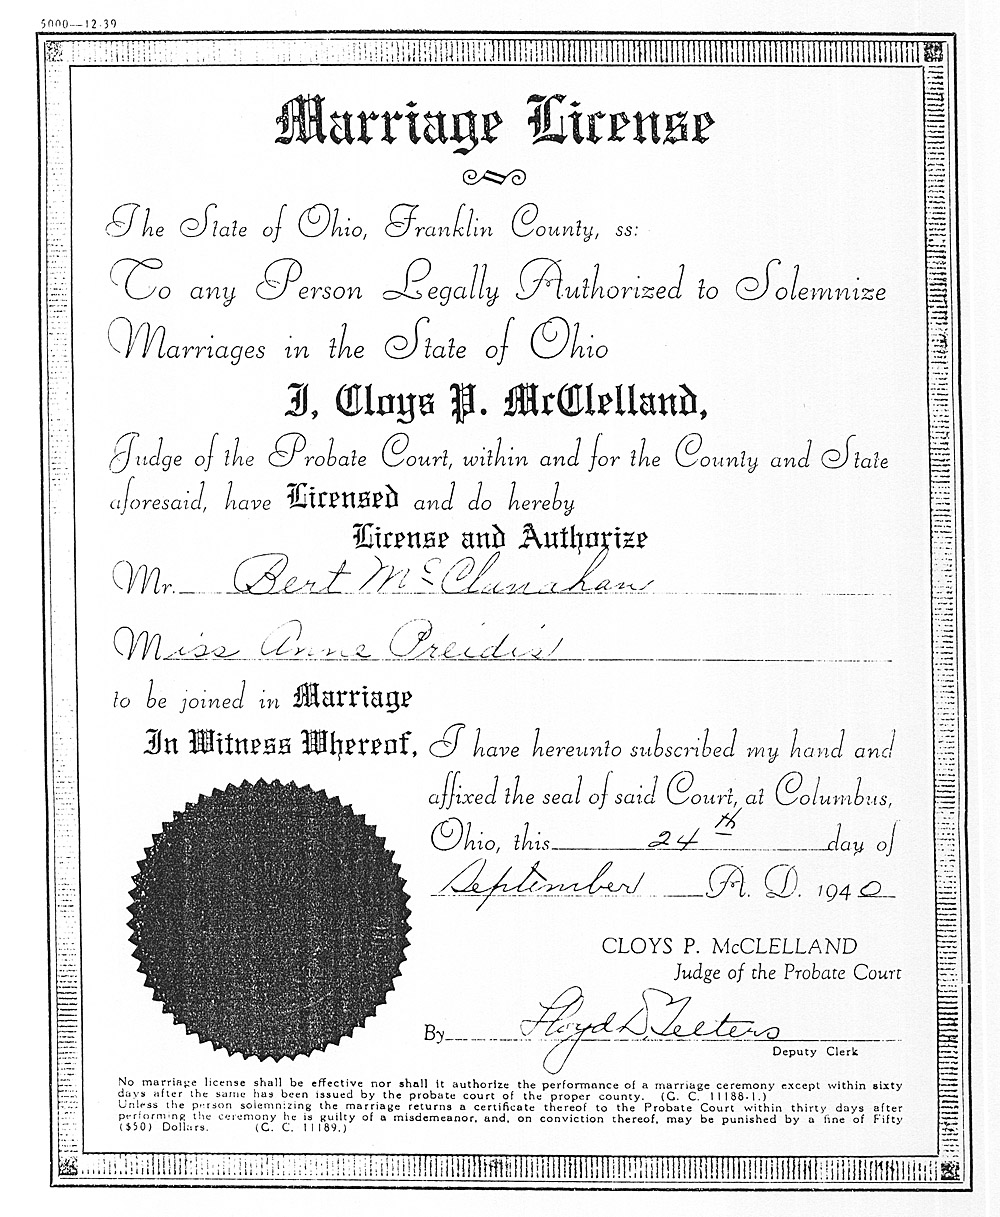 5000--12-39
Marriage License
The State of Ohio, Franklin County, ss:
To any Person Legally Authorized to Solemnize
Marriages in the State of Ohio
I, Cloys P. McClelland,
Judge of the Probate Court, within and for the County and State
aforesaid, have Licensed and do hereby
License and Authorize
Mr. Bert McClanahan
Miss Anne Preidis
to be joined in Marriage
In Witness Whereof, I have hereunto subscribed my hand and
affixed the seal of said Court, at Columbus,
Ohio, this 24th day of
September A. D. 1940
CLOYS P. McCLELLAND
Judge of the Probate Court
By Lloyd D. Teeters
Deputy Clerk
No marriage license shall be effective nor shall it authorize the performance of a marriage ceremony except within sixty
days after the same has been issued by the probate court of the proper county. (G. C. 11188-1.)
Unless the person solemnizing the marriage returns a certificate thereof to the Probate Court within thirty days after
performing the ceremony he is guilty of a misdemeanor, and, on conviction thereof, may be punished by a fine of Fifty
($50) Dollars. (G. C. 11189.)